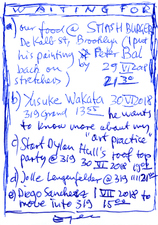 WAITING FOR
a) our food @ STASH BURGER
DeKalb St, Brooklyn (I put
his painting Peter Bal
back on by 29 VI 2018
stretchers) 21/30
b) Yusuke Wakata 30 VI 2018
319 Grand 13 55 he wants
to know more about my
c) Start Dylan Hall's "art practice"
party @ 319 roof top
30 VI 2018
d) Jolle Lengenfelder @ 319
e) Diego Sanchez 1 VII 2018
move into 319 15 00